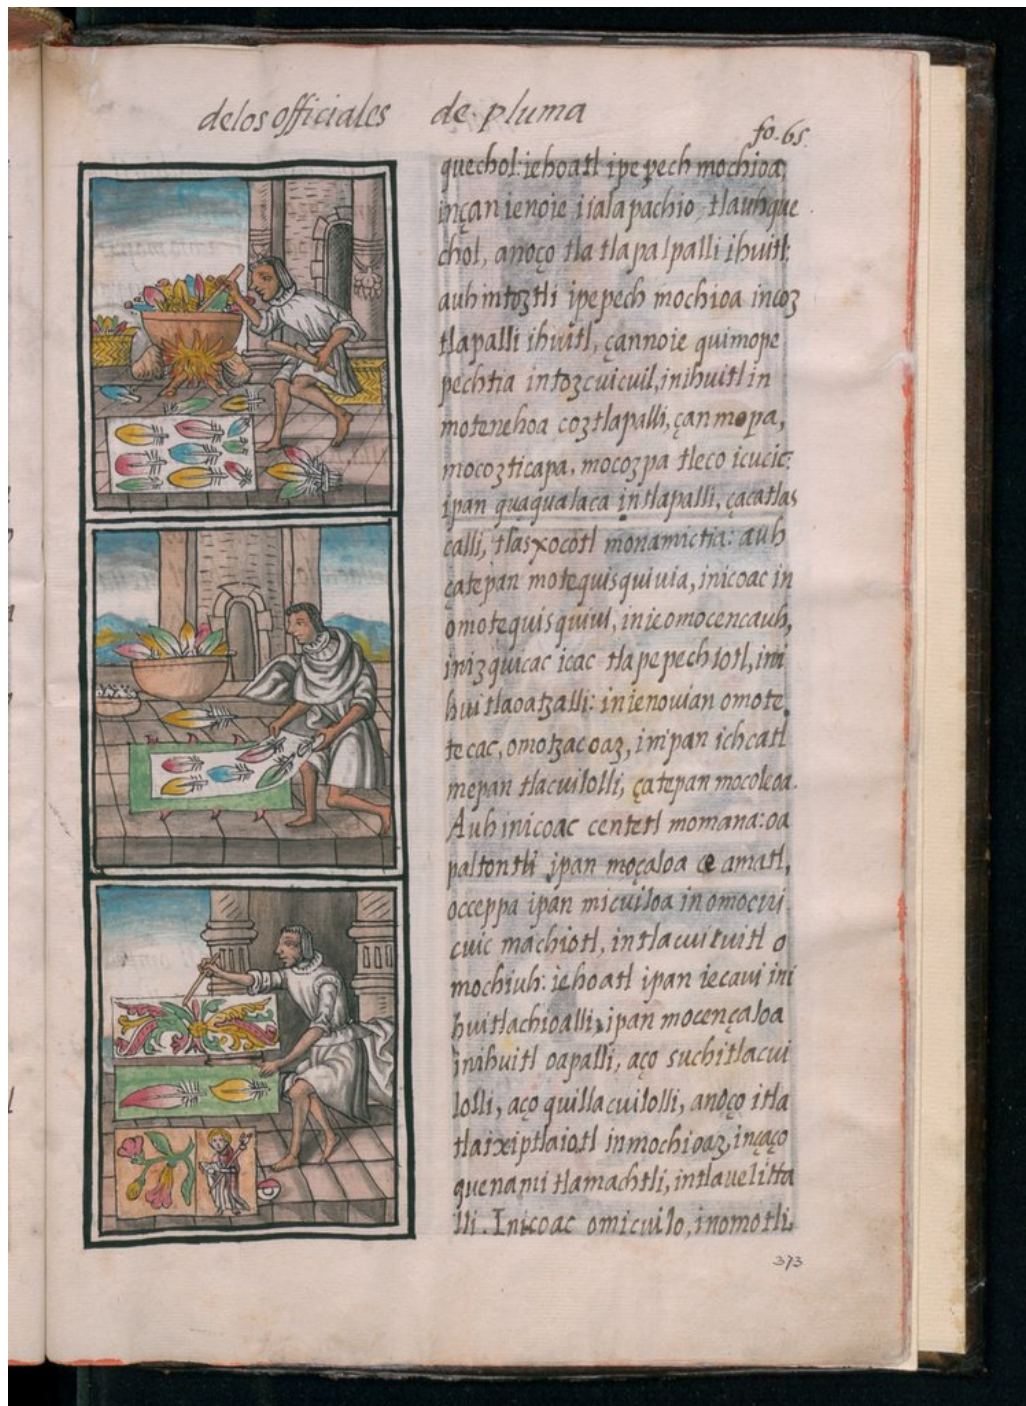 delos officiales de pluma
fo. 65.
quechol: iehoatl ipepech mochioa;
inçan ienoie iialapachio, tlauhque
chol, anoço tla tlapalpalli ihuitl:
auh intoztli ipepech mochioa incoz
tlapalli ihuitl, çannoie quimope
pechtia intozcuicuil, inihuitl in
motenehoa coztlapalli, çan mopa,
mocozticapa, mocozpa tleco icucic:
ipan quaqualaca intlapalli, çacatlas
calli, tlasxocotl monamictia: auh
çatepan motequisquiuia, inicoac in
omotequisquiui, inieomocencauh,
inizquicac icac tlapepechiotl, ini
hui tlaoatzalli: inienouian omote
tecac, omotzacoaz, inipan ichcatl
mepan tlacuilolli, çatepan mocolcoa.
Auh inicoac centetl momana: oa
paltontli ipan moçaloa ce amatl,
occeppa ipan micuiloa inomocui
cuic machiotl, intlacuiluitl o
mochiuh: iehoatl ipan iecaui ini
huitlachioalli, ipan mocençaloa
inihuitl oapalli, aço suchitlacui
lolli, aço quillacuilolli, anoço itla
tlaixiptlaiotl inmochioaz, inçaço
quenami tlamachtli, intlauelitta
lli. Inicoac omicuilo, inomotli.
373